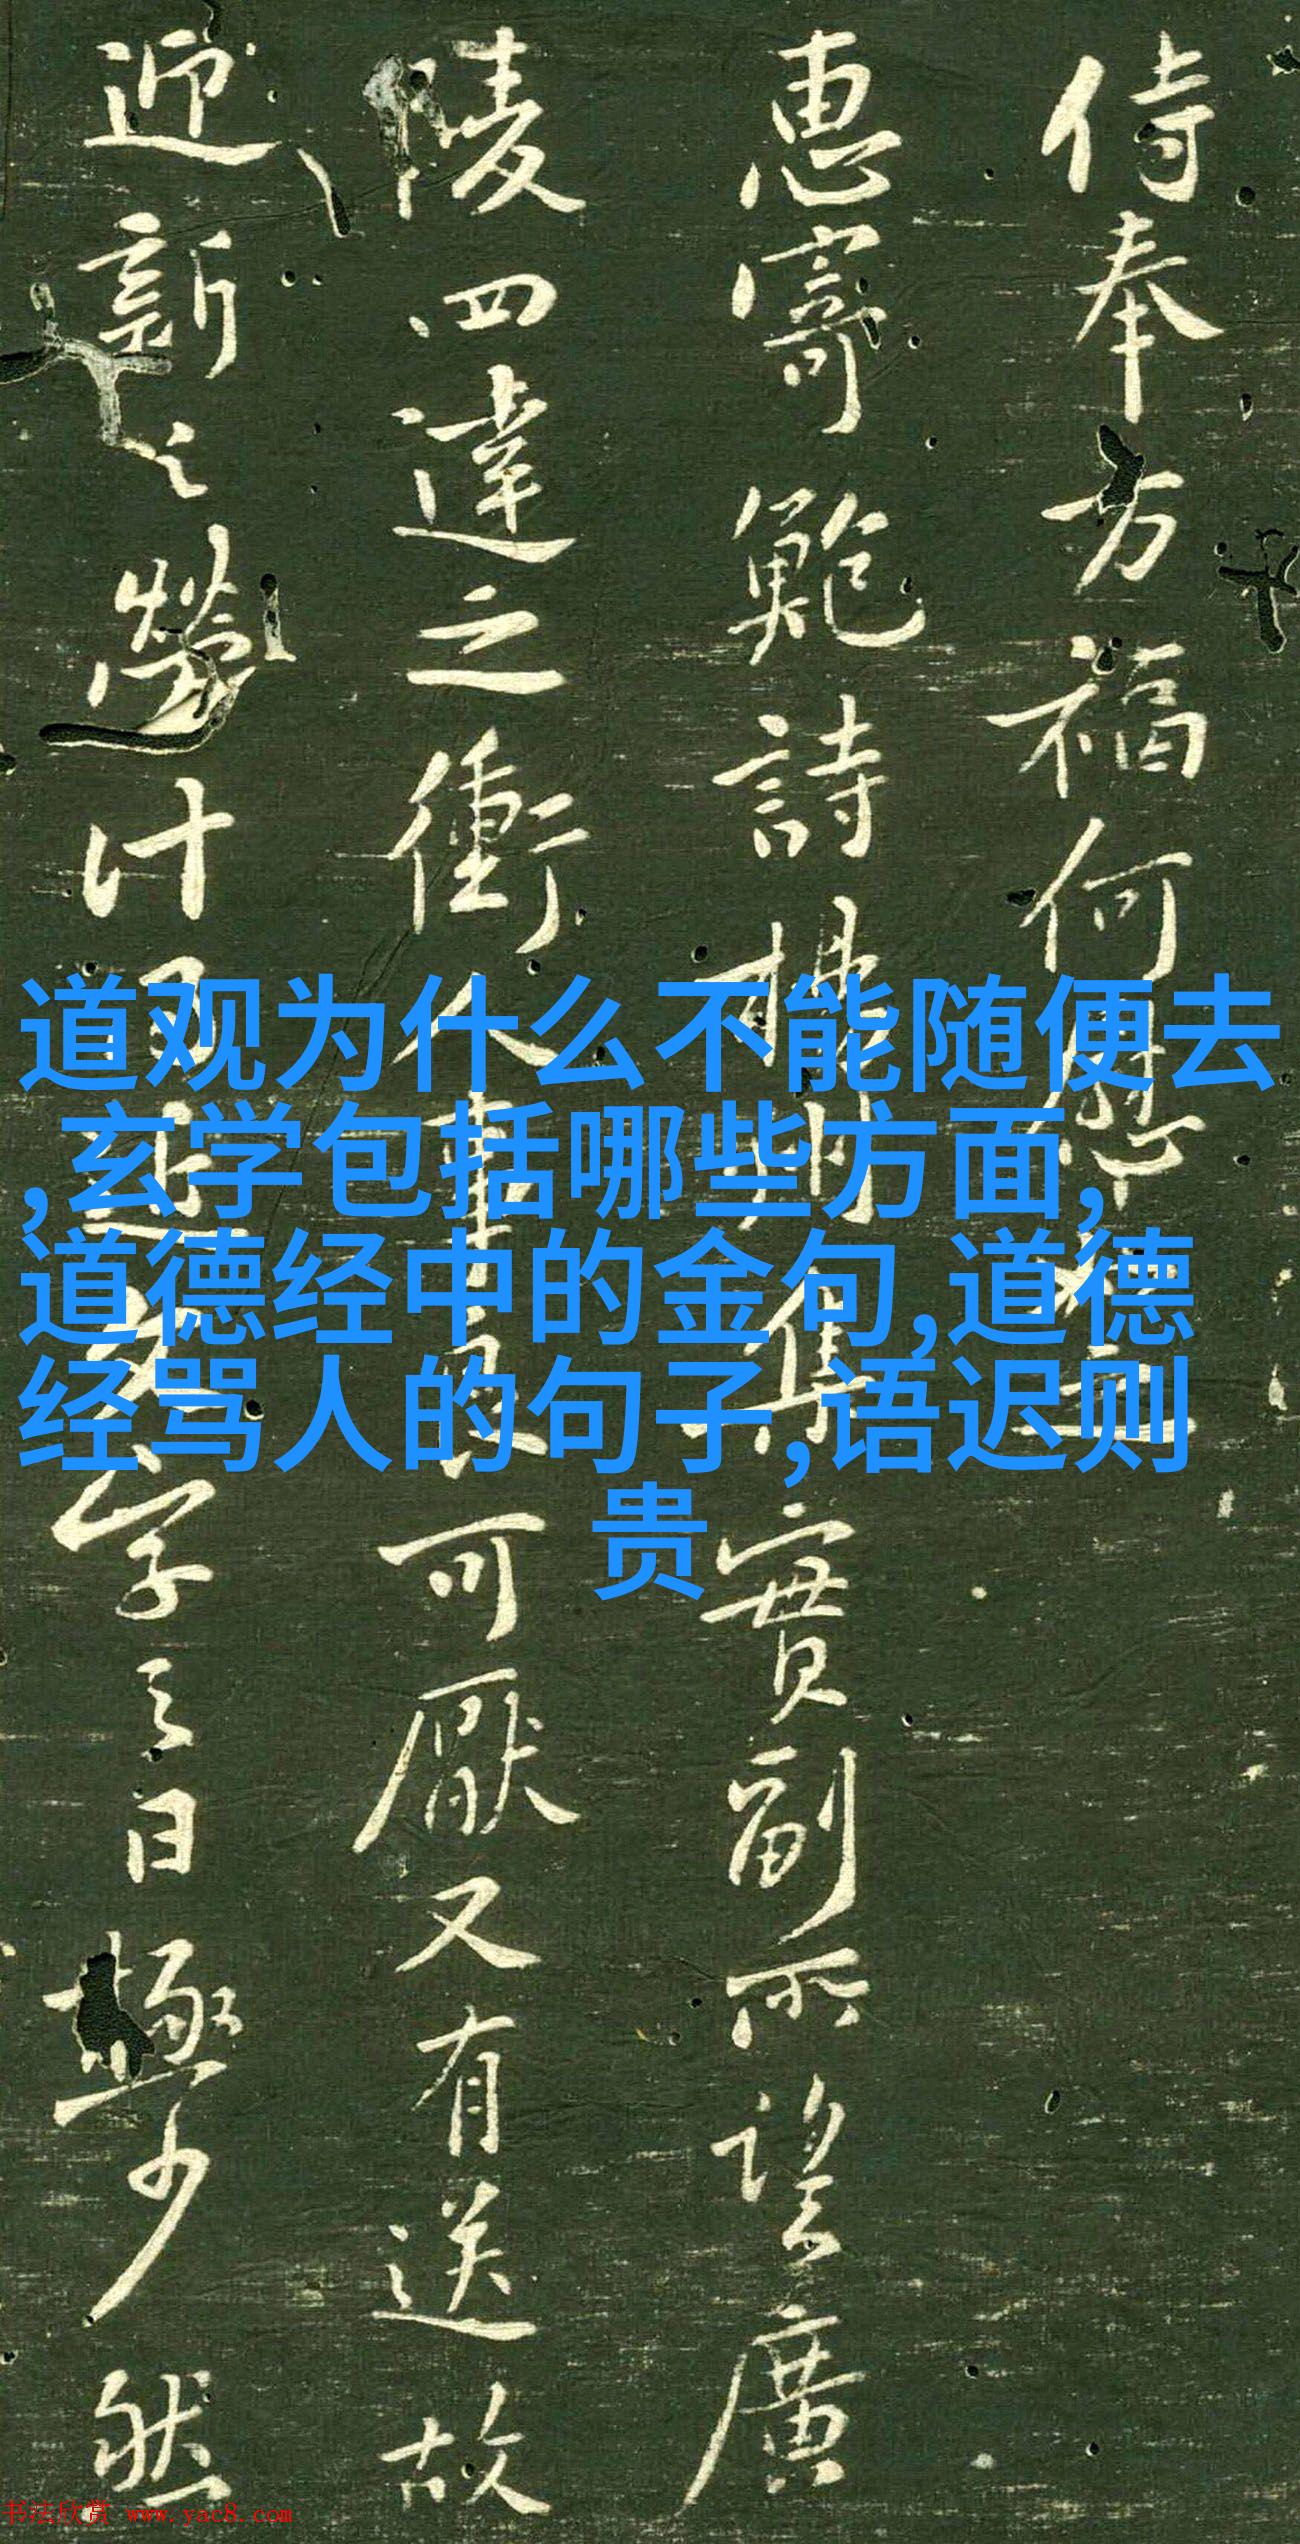 侍奉方福何
惠寄鲍詩
集實副所望廣
陵四達之衝人事
可厭又有送故
迎新之勞計
字言日極少然
道观为什么不能随便去
,玄学包括哪些方面,
道德经中的金句,道德
经骂人的句子,语迟则
贵
书法欣赏 www.yac8.com